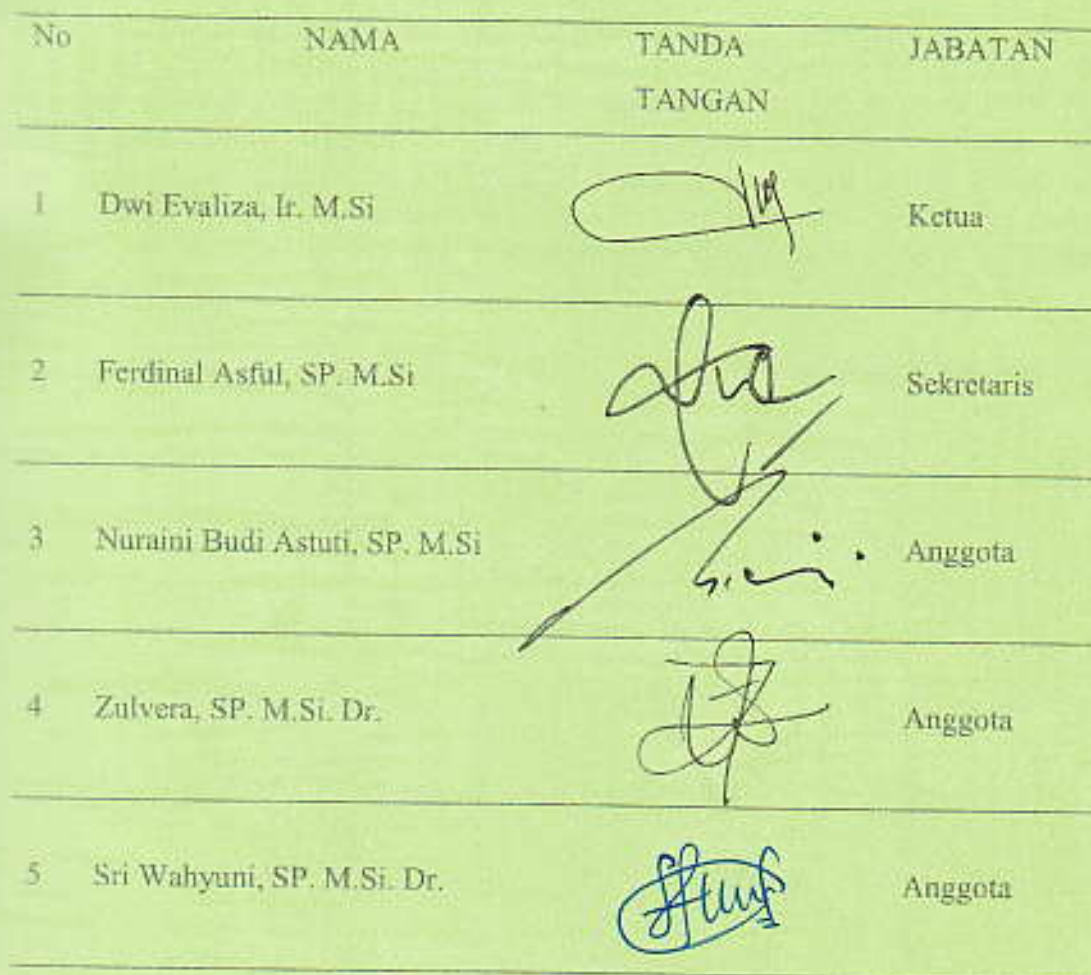 No NAMA TANDA TANGAN JABATAN
1 Dwi Evaliza, Ir. M.Si Ketua
2 Ferdinal Asful, SP. M.Si Sekretaris
3 Nuraini Budi Astuti, SP. M.Si Anggota
4 Zulvera, SP. M.Si. Dr. Anggota
5 Sri Wahyuni, SP. M.Si. Dr. Anggota